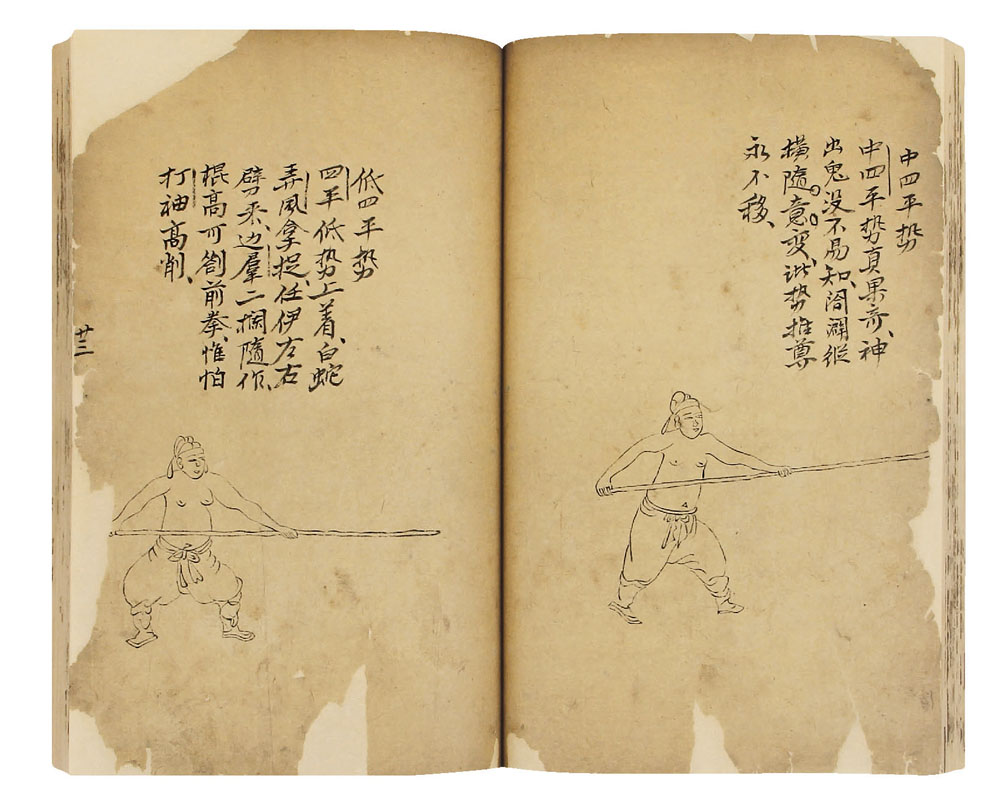 中四平势
中四平势真果奇、神
出鬼没不易知、閤闢縱
橫隨意变、诸势推尊
永不移、
低四平势
四平低势上着、白蛇
弄風拿捉、任伊左右
劈来、边羣二攔隨作、
棍高可劄前拳、惟怕
打袖高削、
廿三